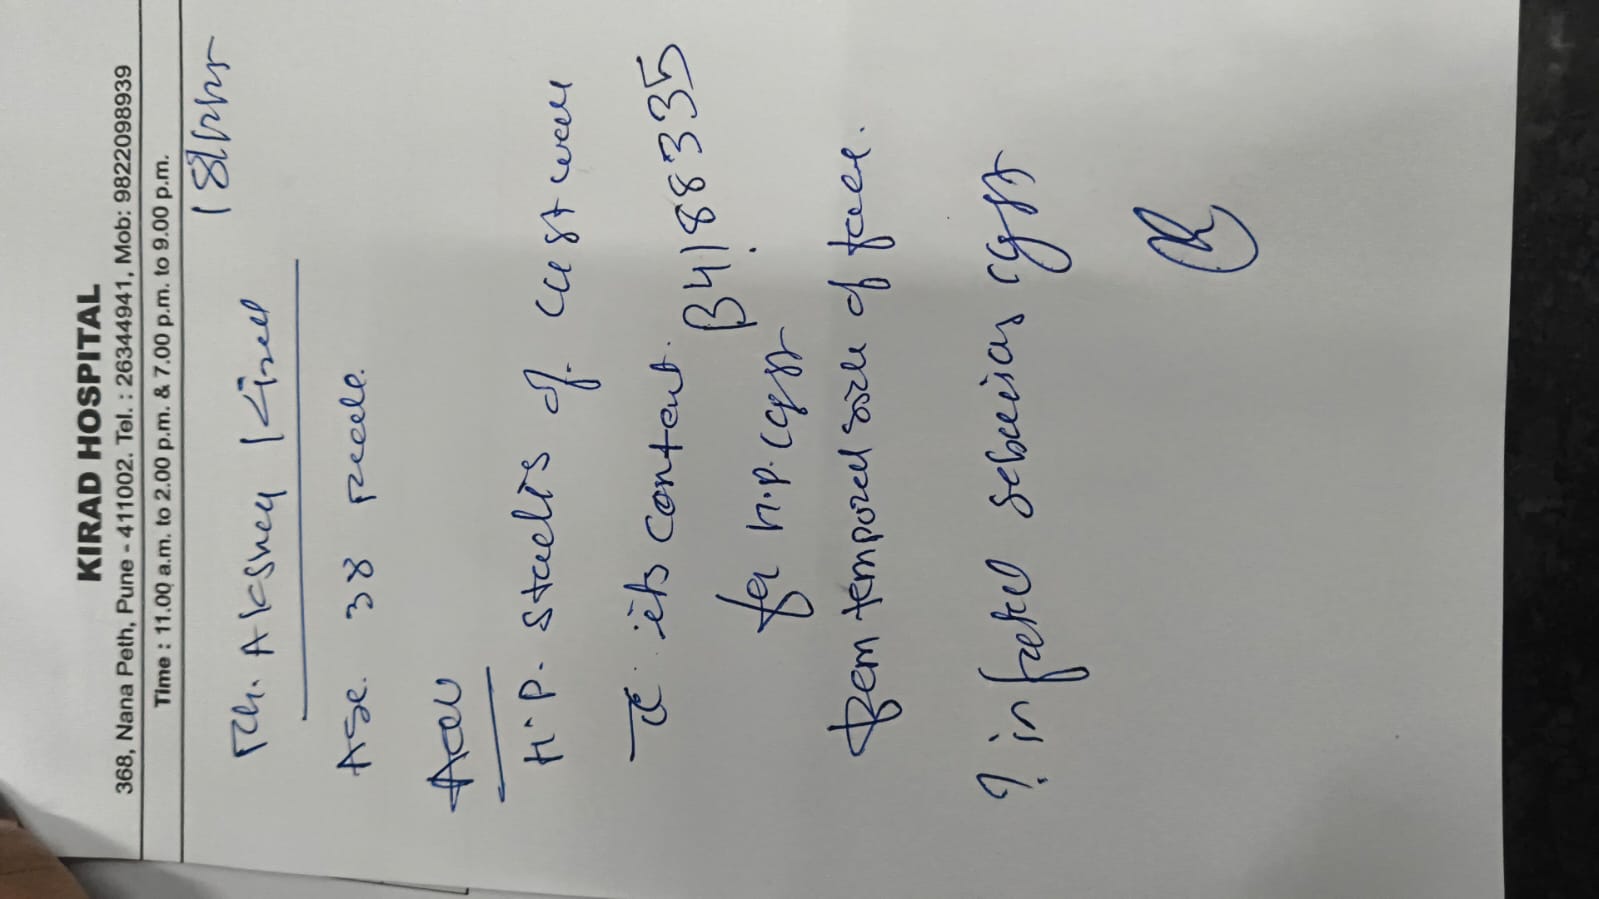 KIRAD HOSPITAL
368, Nana Peth, Pune - 411002. Tel. : 26344941, Mob: 9822098939
Time : 11.00 a.m. to 2.00 p.m. & 7.00 p.m. to 9.00 p.m.
Akshay
Age. 38 male.
Adv
H.P. studies of cyst wall
c̄ its content.
B4188335
for H.P. cyst
from temporal side of face.
? infected sebacious cyst